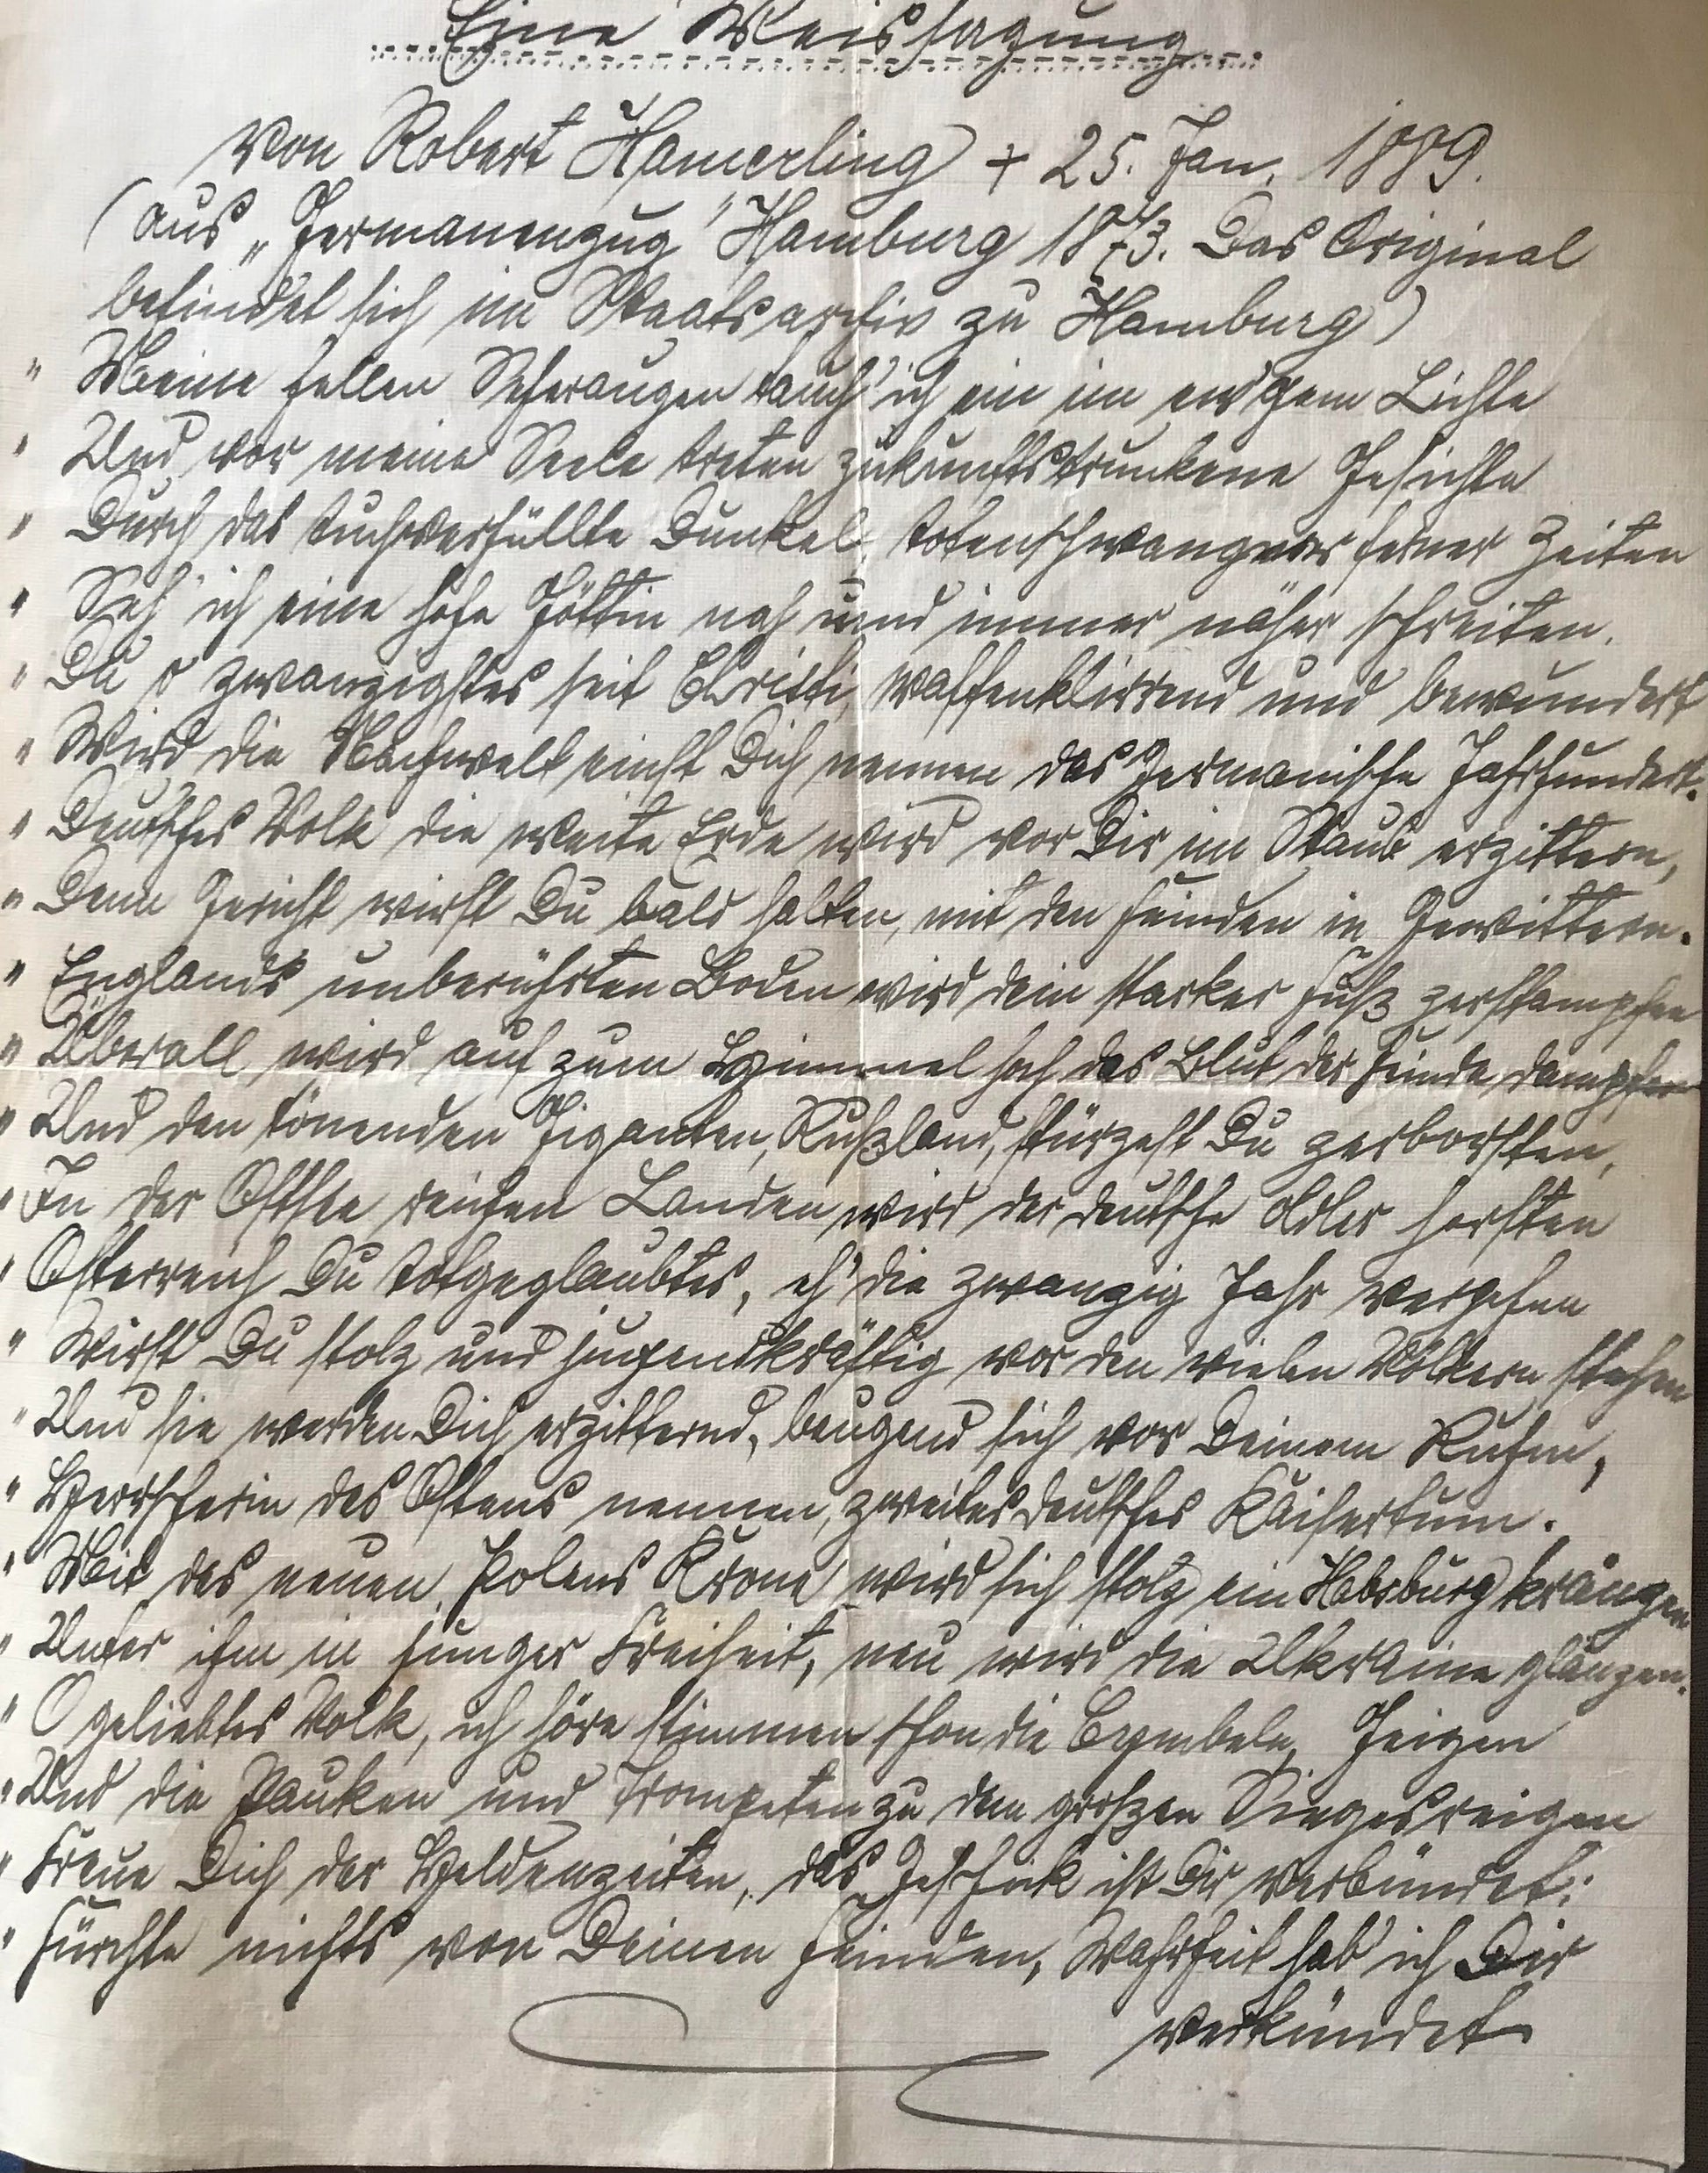 Eine Weissagung
von Robert Hamerling + 25. Jan. 1889.
(aus „Germanenzug" Hamburg 1873. Das Original
befindet sich im Staatsarchiv zu Hamburg)
" Meine hellen Seheraugen tauch' ich ein im ew'gem Lichte
" Und vor meine Seele treten zukunftstrunkene Gesichte
" Durch das tuchverhüllte Dunkel, totenschwangerer ferner Zeiten
" Seh' ich eine hohe Göttin nah und immer näher schreiten.
" Du o zwanzigstes seit Christi, waffenklirrend und bewundert
" Wird die Nachwelt einst Dich nennen das Germanische Jahrhundert.
" Deutsches Volk die weite Erde wird vor Dir im Staub erzittern,
" Denn Gericht wirst Du bald halten, mit den Feinden in Gewittern.
" Englands unberührten Boden wird dein starker Fuß zerstampfen
" Überall wird auf zum Himmel hoch das Blut der Feinde dampfen
" Und den tönenden Giganten, Rußland, stürzest Du zerborsten,
" In der Ostsee reichen Landen wird der deutsche Adler horsten
" Österreich Du totgeglaubtes, eh' die zwanzig Jahr vergehen
" Wirst Du stolz und jugendkräftig vor den vielen Völkern stehen
" Und sie werden Dich erzitternd, beugend sich vor Deinem Ruhm,
" Herrscherin des Ostens nennen, zweites deutsches Kaisertum.
" Mit des neuen Polens Krone wird sich stolz ein Habsburg kränzen
" Unter ihm in junger Freiheit, neu wird die Ukraine glänzen.
" O geliebtes Volk, ich höre stimmen schon die Cymbeln, Geigen
" Und die Pauken und Trompeten zu dem großen Siegesreigen
" Freue Dich der Heldenzeiten, das Geschick ist Dir verbündet;
" Fürchte nichts von Deinen Feinden, Wahrheit hab' ich Dir
verkündet